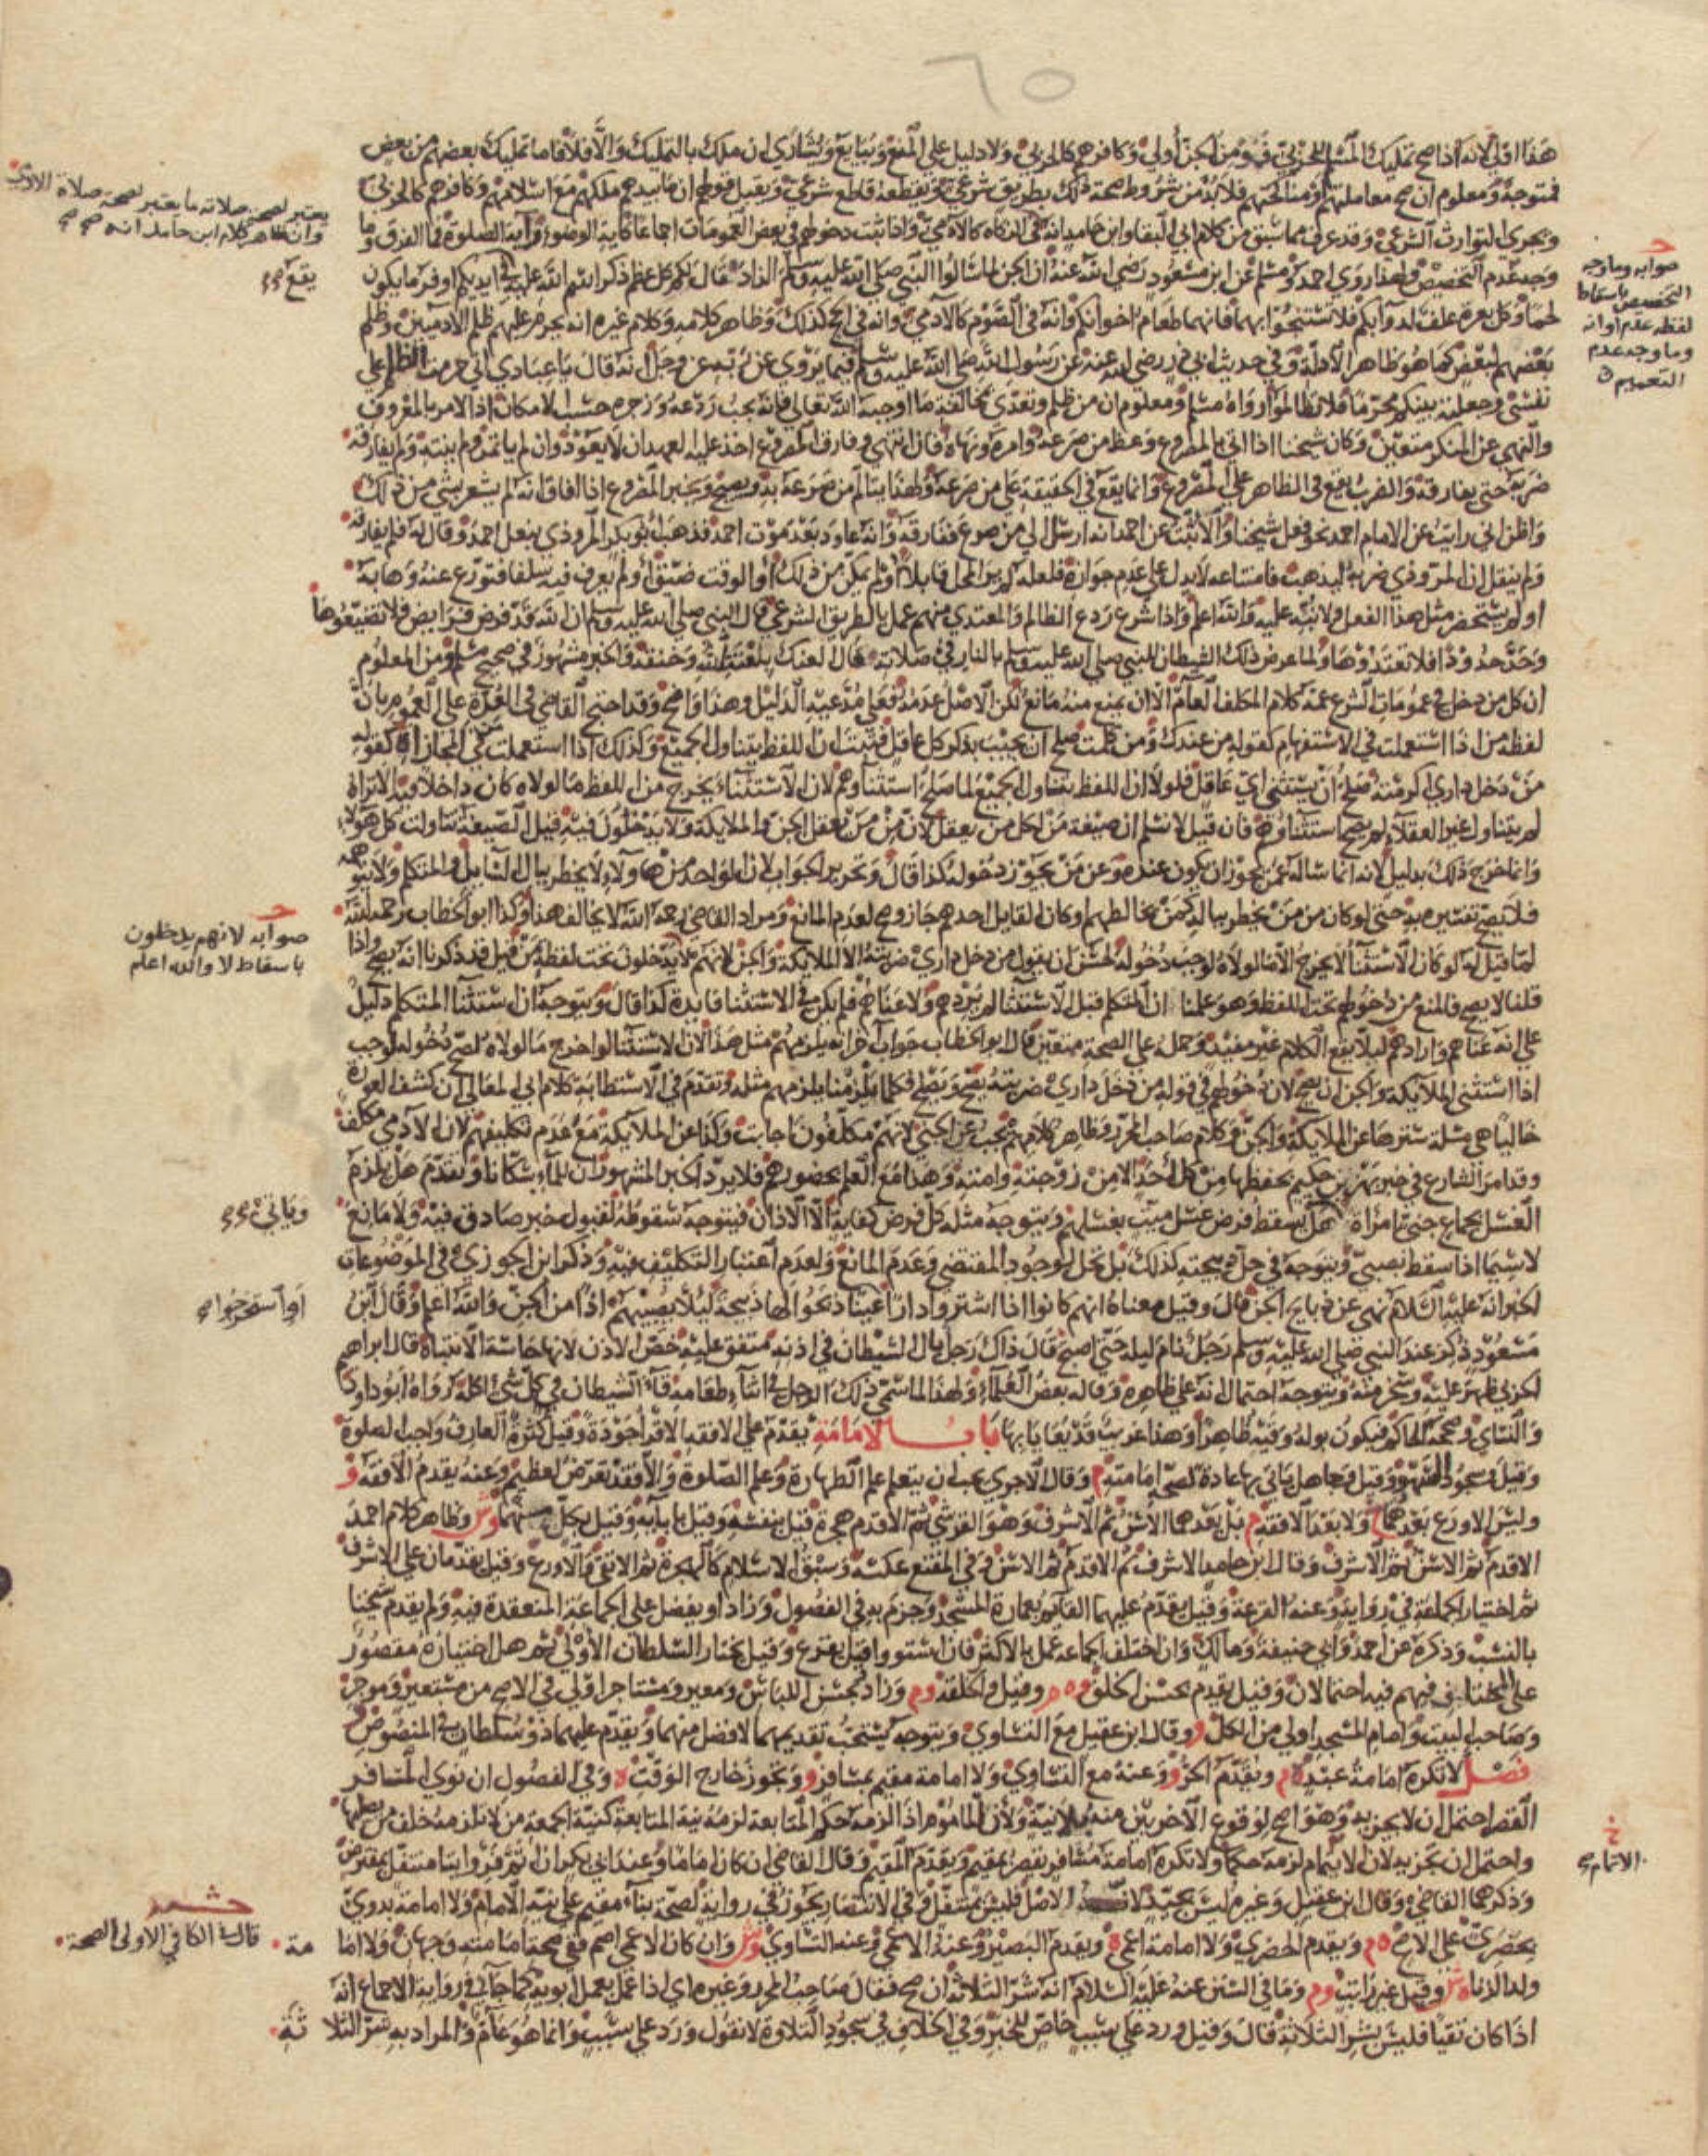 ٦٥
هذا اولى لانه اذا صح تمليك المسلم للحربي فمؤمن الجن أولى وكافرهم كالحربي ولا دليل على المنع ويبايع ويشاري ان ملك بالتمليك والا فلا فاما تمليك بعضهم من بعض
فمتوجه ومعلوم ان صح معاملتهم ومناكحتهم فلا بد من شروط صحة ذلك بطريق شرعي ويقطعه قاطع شرعي ويقبل قولهم ان ما بيدهم ملكهم مع اسلامهم وكافرهم كالحربي
ويجري التوارث الشرعي وقد عرف مما سبق من كلام ابي البقا وابن حامد انه في الزكاة كالآدمي واذا ثبت دخولهم في بعض العمومات اجماعا كآية الوضوء وآية الصلوة فما الفرق وما
وجه عدم التخصيص ولهذا روى احمد ومسلم عن ابن مسعود رضي الله عنه ان الجن لما سالوا النبي صلى الله عليه وسلم الزاد قال لكم كل عظم ذكر اسم الله عليه في ايديكم اوفر ما يكون
لحما وكل بعرة علف لدوابكم فلا تستنجوا بهما فانهما طعام اخوانكم وانه في الصوم كالآدمي وانه في الحج كذلك وظاهر كلامه وكلام غيره انه يحرم عليهم ظلم الادميين وظلم
بعضهم لبعض كما هو ظاهر الادلة وفي حديث ابي ذر رضي الله عنه عن رسول الله صلى الله عليه وسلم فيما يروي عن ربه عز وجل انه قال يا عبادي اني حرمت الظلم على
نفسي وجعلته بينكم محرما فلا تظالموا رواه مسلم ومعلوم ان من ظلم وتعدى بمخالفة ما اوجبه الله تعالى فانه يجب ردعه وزجره حسب الامكان اذا الامر بالمعروف
والنهي عن المنكر متعين وكان شيخنا اذا اتي بالمصروع وعظ من صرعه وامره ونهاه فان انتهى وفارق المصروع اخذ عليه العهد ان لا يعود وان لم ياتمر ولم ينته ولم يفارقه
ضربه حتى يفارقه والضرب يقع في الظاهر على المصروع وانما يقع في الحقيقة على من صرعه ولهذا يتالم من صرعه به ويصيح ويخبر المصروع اذا افاق انه لم يشعر بشي من ذلك
واظن اني رايت عن الامام احمد نحو فعل شيخنا والاثبت عن احمد انه ارسل الى من صرع ففارقه وانه عاود بعد موت احمد فذهب أبو بكر المروذي بنعل احمد وقال له فلم يفارقه
ولم ينقل ان المروذي ضربه ليذهب فامتناعه لا يدل على عدم جوازه فلعله لم ير المحل قابلا او لم يتمكن من ذلك أو الوقت ضيق أو لم يعرف فيه سلفا فتورع عنه وهابه
او لم يستحضر مثل هذا الفعل ولا نبه عليه والله اعلم واذا شرع ردع الظالم والمعتدي منهم عمل بالطريق الشرعي قال النبي صلى الله عليه وسلم ان الله قد فرض فرايض فلا تضيعوها
وحد حدودا فلا تعتدوها ولما عرض ذلك الشيطان للنبي صلى الله عليه وسلم بالنار في صلاته قال العنك بلعنة الله وخنقه والخبر مشهور في صحيح مسلم ومن المعلوم
ان كل من دخل في عمومات الشرع عمه كلام المكلف العام الا ان يمنع منه مانع لكن الاصل عدمه فعلى مدعيه الدليل وهذا واضح وقد احتج القاضي في العدة على العموم بأن
لفظة من اذا استعملت في الاستفهام كقوله من عندك ومن كلمت صلح ان يجيب بذكر كل عاقل فثبت ان اللفظ يتناول الجميع وكذلك اذا استعملت في المجازاة كقوله
من دخل داري اكرمته صلح أن يستثني اي عاقل فلولا ان اللفظ يتناول الجميع لما صلح استثناؤهم لان الاستثناء يخرج من اللفظ ما لولاه كان داخلا فيه الا تراه
لم يتناول غير العقلا لم يصح استثناؤهم فان قيل لا نسلم ان صيغة من لكل من يعقل لان من من يعقل الجن والملايكة ولا يدخلون فيه قيل الصيغة تناولت كل هؤلاء
وانما خرج ذلك بدليل لانه انما ساله عمن يجوز ان يكون عنده وعن من يجوز دخوله كذا قال وتحرير الجواب لان الواحد من هؤلاء لا يخطر ببال السايل والمتكلم ولا يتوهمه
فلا يصح تفسيره به حتى لو كان من من يخطر بباله كمن يخالطهم او كان القايل احدهم جاز وصح لعدم المانع ومراد القاضي رحمه الله لا يخالف هذا وكذا ابو الخطاب رحمه الله
لما قيل له لو كان الاستثنا لا يخرج الا ما لولاه لوجب دخوله لحسن ان يقول من دخل داري ضربته الا الملايكة والجن لانهم لا يدخلون تحت لفظة من قيل قد ذكرنا انه يصح واذا
قلنا لا يصح فالمنع من دخولهم تحت اللفظ وهو علمنا ان المتكلم قبل الاستثنا لم يردهم ولا عناهم فلم يكن في الاستثنا فايدة كذا قال ويتوجه ان استثنا المتكلم دليل
على انه عناهم وارادهم ليلا يقع الكلام غير مفيد وحمله على الصحة متعين قال ابو الخطاب جواب آخر انه يلزمهم مثل هذا لان الاستثنا لو اخرج ما لولاه لصح دخوله لوجب
اذا استثنى الملايكة والجن ان يصح لان دخولهم في قوله من دخل داري ضربته يصح ويصلح فكلما يلزمنا يلزمهم مثله وتقدم في الاستطابة كلام ابي المعالي ان كشف العورة
خاليا هي مسلة سترها عن الملايكة والجن وكلام صاحب المحرر وظاهر كلامهم يجب عن الجن لانهم مكلفون اجانب وكذا عن الملايكة مع عدم تكليفهم لان الآدمي مكلف
وقد امر الشارع في خبر بهز بن حكيم بحفظها من كل أحد الا من زوجته وامته وهذا مع العلم بحضورهم فلا يرد الخبر المشهور ان للماء سكانا وتقدم هل يلزم
الغسل بجماع جني امراة هل يسقط فرض غسل ميت بغسلهم ويتوجه مثله كل فرض كفاية الا الاذان فيتوجه سقوطه لقبول خبر صادق فيه ولا مانع
لا سيما اذا سقط بصبي ويتوجه في حل ذبيحته كذلك بل يحل لوجود المقتضي وعدم المانع ولعدم اعتبار التكليف فيه وذكر ابن الجوزي في الموضوعات
الخبر انه عليه السلام نهى عن ذبايح الجن قال وقيل معناه انهم كانوا اذا اشتروا دارا أعينا ذبحوا لها ذبيحة ليلا يصيبهم اذا من الجن والله اعلم وقال ابن
مسعود ذكر عند النبي صلى الله عليه وسلم رجل نام ليله حتى اصبح قال ذاك رجل بال الشيطان في اذنه متفق عليه خص الاذن لانها حاسة الانتباه قال ابراهيم
الحربي ظهر عليه وسخر منه ويتوجه احتمال انه على ظاهره وقاله بعض العلماء ولهذا لما سمى ذلك الرجل في اثناء طعامه قاء الشيطان كل شيء اكله رواه ابو داود
والنساي وصححه الحاكم فيكون بوله وقيئه طاهرا وهذا غريب قد يعايا بها باب الامامة يقدم على الافقه الاقرأ جودة وقيل كثرة العارف واجب الصلوة
وقيل وسجود السهو وقيل وجاهل ياتي بها عادة لصحة امامته م وقال الاجري يجب ان يتعلم علم الطهارة وعلم الصلوة والا فقد تعرض لعظيم وعنه يقدم الافقه و
وليس الاورع بعدهما ح ولا بعد الافقه م بل بعدهما الأسن ثم الاشرف وهو القرشي ثم الاقدم هجرة قيل بنفسه وقيل بابايه وقيل بكل منهما وش وظاهر كلام احمد
الاقدم ثم الاسن ثم الاشرف وقال ابن حامد الاشرف ثم الاقدم ثم الاسن وفي المقنع عكسه وسبق الاسلام كالهجرة ثم الاتقى والاورع وقيل يقدمان على الاشرف
ثم اختيار الجماعة في رواية وعنه القرعة وقيل يقدم عليهما القائم بعمارة المسجد وجزم به في الفصول وزاد او يفضل على الجماعة المنعقدة فيه ولم يقدم شيخنا
بالنسب وذكره عن احمد وابي حنيفة ومالك وان اختلف الجماعة عمل بالاكثر فان استووا قيل يقرع وقيل يختار السلطان الأولى ثم هل اختياره مقصور
على المختلف فيهم فيه احتمالان وقيل يقدم بحسن الخلق وه م وقيل والخلقة وم وزاد بحسن اللباس ومعير ومستاجر اولى في الاصح من مستعير وموجر
وصاحب البيت وامام المسجد اولى من الكل و وقال ابن عقيل مع التساوي ويتوجه يستحب تقديمهما لافضل منهما ويقدم عليهما ذو سلطان في المنصوص و
فصل لا تكره امامة عبد و م ويقدم الحر و وعنه مع التساوي ولا امامة مقيم بمسافر و ويجوز خارج الوقت ه وفي الفصول ان نوى المسافر
القصر احتمل ان لا يجزيه وهو اصح لوقوع الآخريين منه بلا نية ولأن المأموم اذا لزمه حكم المتابعة لزمه نية المتابعة كنية الجمعة من لا تلزمه خلف من يصليها
واحتمل ان تجزيه لان الاتمام لزمه حكما ولا تكره امامة مسافر يقصر بمقيم ويقدم المقيم وقال القاضي ان كان اماما وعند ابي بكر ان اتم فروايتا متنفل بمفترض
وذكرهما القاضي وقال ابن عقيل وغيره ليس بجيد لانه الاصل فليس بمتنفل وفي الانتصار يجوز في رواية لصحة بناء مقيم على نية الامام ولا امامة بدوي
بحضري على الاصح ه م ويقدم الحضري ولا امامة اعمى ه ويقدم البصير وعنه الاعمى وعنه التساوي وش وان كان الاعمى اصم ففي صحة امامته وجهان ولا اما مة
ولد الزنا ه ش وقيل غير راتب و م وما في السنن عنه عليه السلام انه شر الثلاثة ان صح فقال صاحب المحرر وغيره اي اذا عمل بعمل ابويه كما جاء في رواية لاجماع انه
اذا كان تقيا فليس بشر الثلاثة قال وقيل ورد على سبب خاص للخبر وفي الخلاف في سجود التلاوة لا نقول ورد على سبب وانما هو عام والمراد به شر الثلا ثة
يعتبر لصحة صلاته ما يعتبر لصحة صلاة الادمي
وان ظاهر كلام ابن حامد انه صح صح
يقع صح
ح
صوابه وما وجه
التخصيص باسقاط
لفظة عدم او انه
وما وجه عدم
التعميم
ح
صوابه لانهم يدخلون
باسقاط لا والله اعلم
وياتي صح
أو استخرجوا صح
خ
الاتمام صح
حشمد
قال في الكافي الاولى الصحة